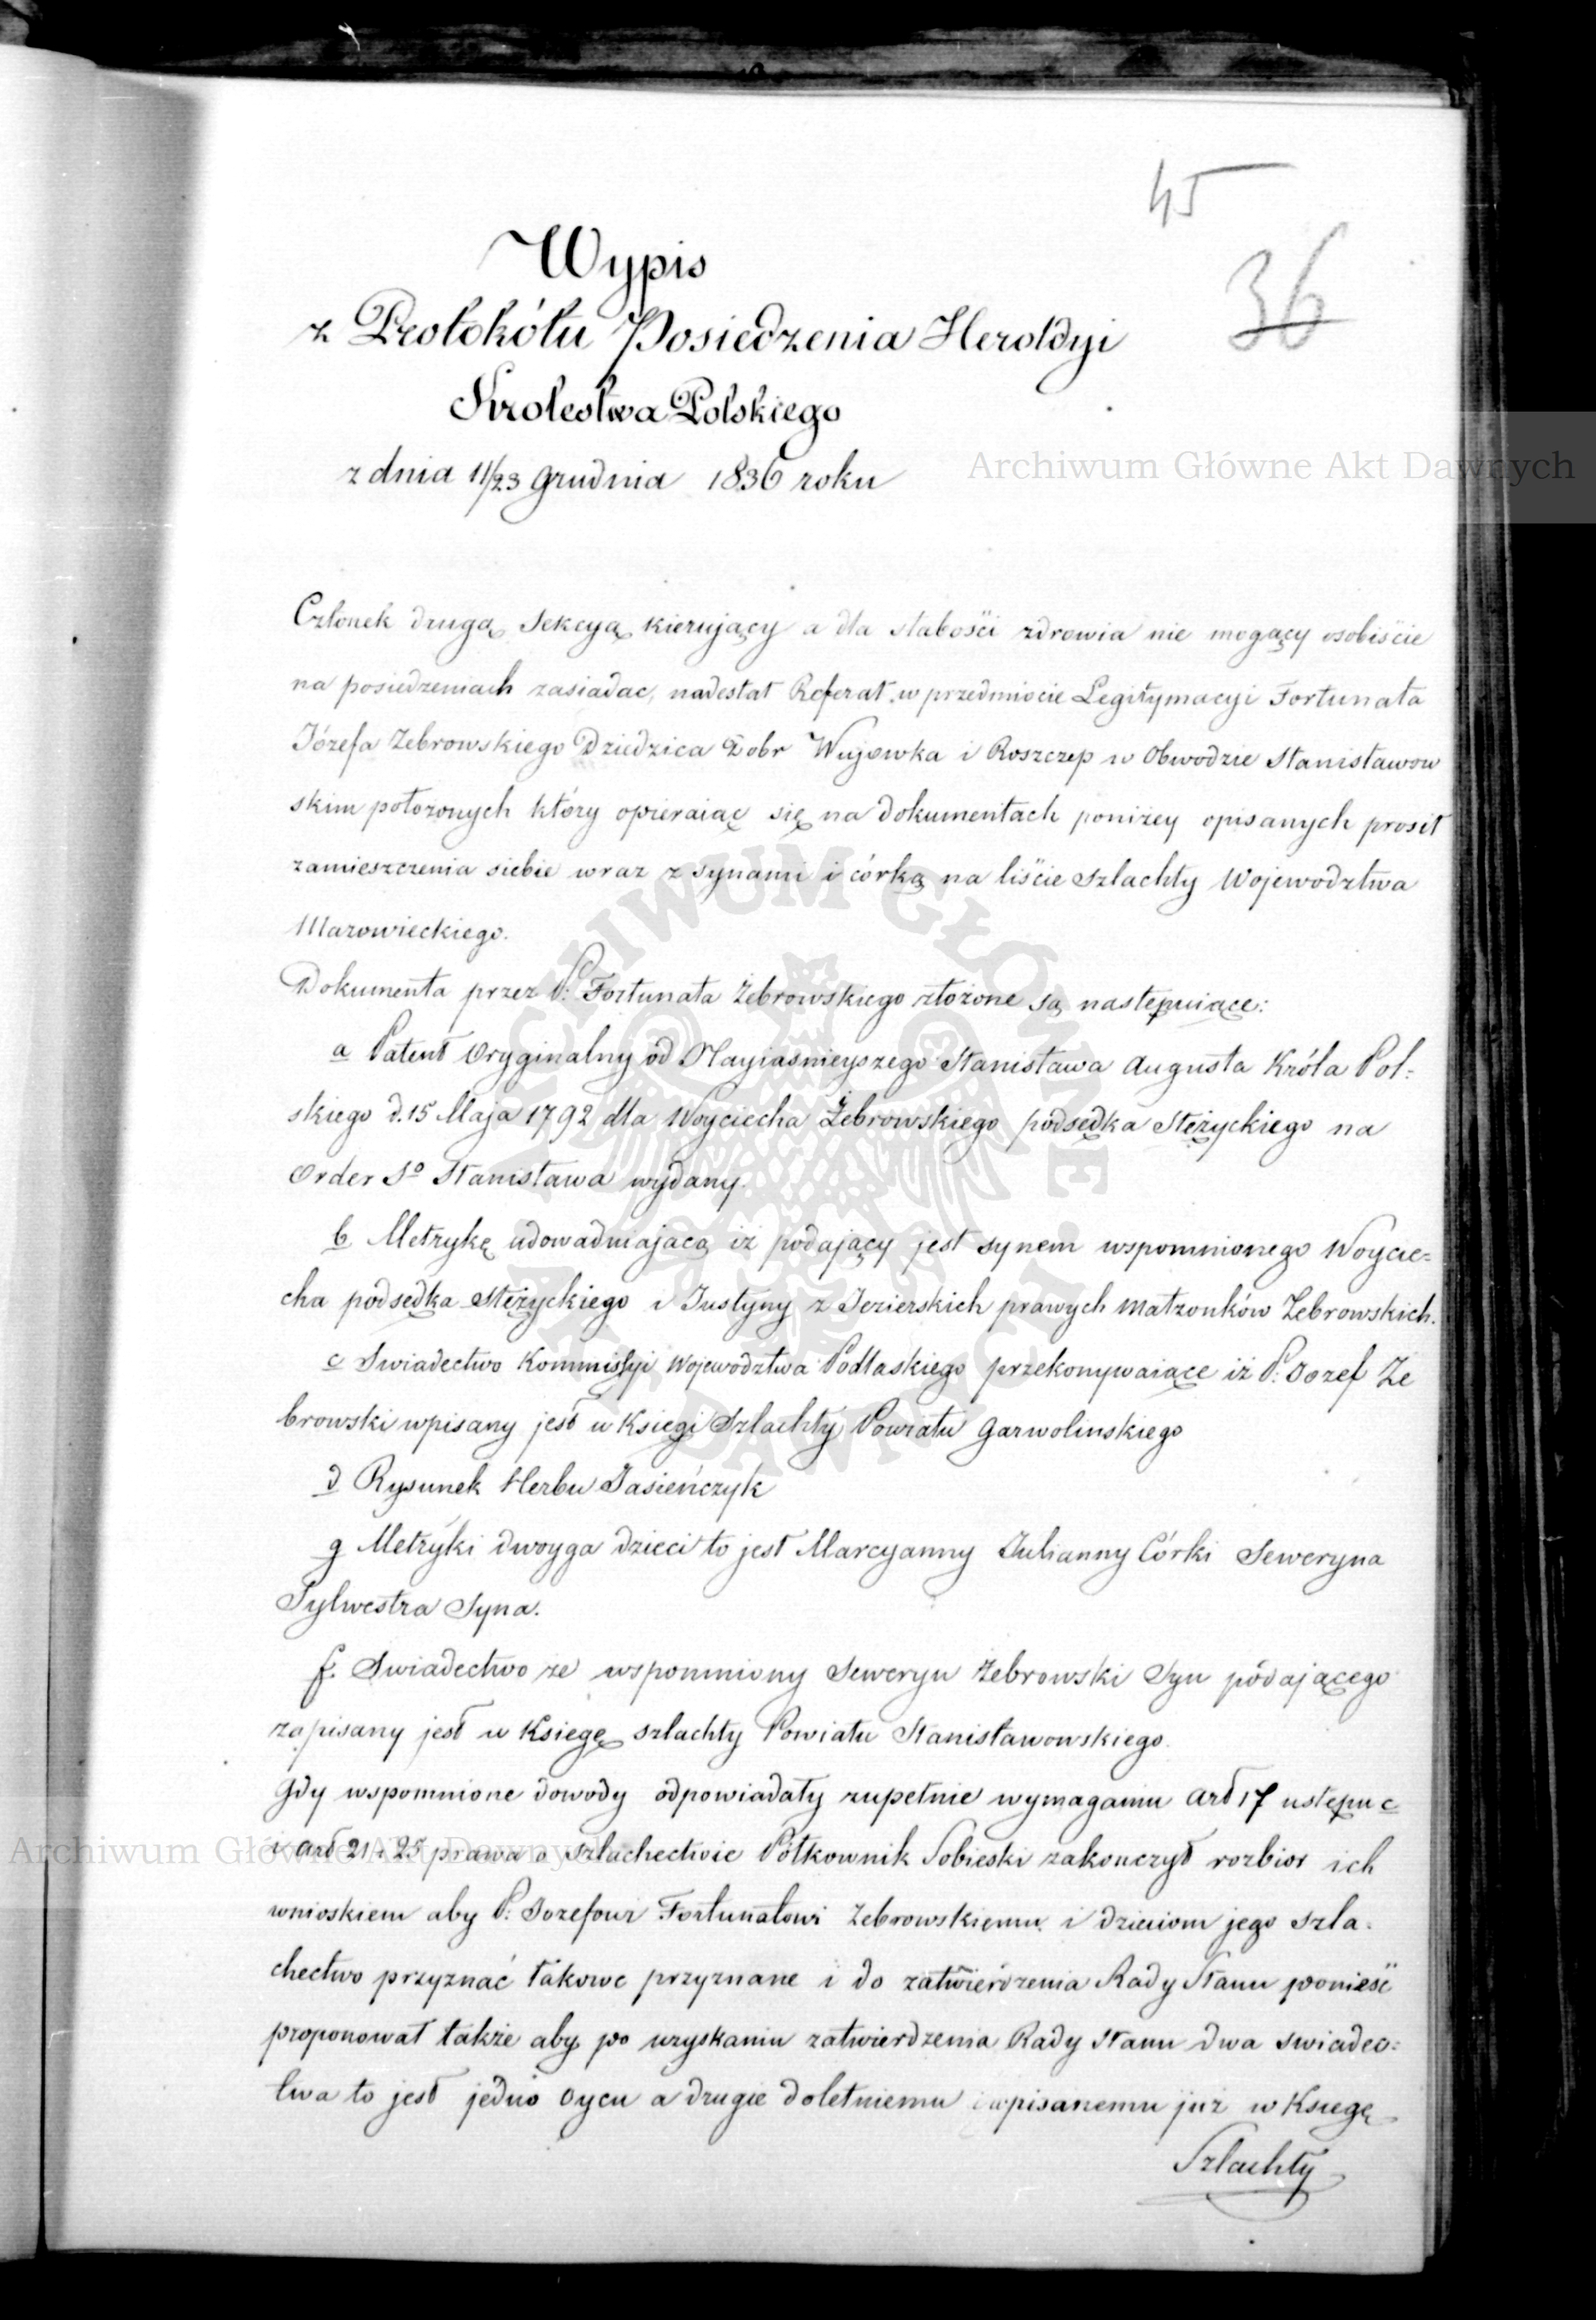 45
36
Wypis
z Protokółu Posiedzenia Heroldyi
Krolestwa Polskiego
z dnia 11/23 Grudnia 1836 roku
Archiwum Główne Akt Dawnych
Członek drugą Sekcyą kierujący a dla słabości zdrowia nie mogący osobiście
na posiedzeniach zasiadac, nadesłał Referat w przedmiocie Legitymacyi Fortunata
Józefa Zebrowskiego Dziedzica Dobr Wujowka i Roszczep w Obwodzie Stanisławow
skim położonych który opieraiąc się na dokumentach poniżey opisanych prosił
zamieszczenia siebie wraz z synami i córką na liście szlachty Wojewodztwa
Mazowieckiego.
Dokumenta przez P. Fortunata Żebrowskiego złożone są następuiące:
a Patent Oryginalny od Nayiasnieyszego Stanisława Augusta Króla Pol=
skiego d. 15 Maja 1792 dla Woyciecha Żebrowskiego podsędka Stężyckiego na
Order So Stanisława wydany.
b Metrykę udowadniającą iż podający jest synem wspomnionego Woycie=
cha podsędka Stężyckiego i Justyny z Jezierskich prawych małzonków Zebrowskich.
c Swiadectwo Kommissyi Wojewodztwa Podlaskiego przekonywaiące iż P. Jozef Że
browski wpisany jest w Księgi Szlachty Powiatu Garwolinskiego
d Rysunek Herbu Jasieńczyk
g Metryki dwoyga dzieci to jest Marcyanny Julianny Córki Seweryna
Sylwestra Syna.
f. Swiadectwo ze wspomniony Seweryn Żebrowski Syn podającego
zapisany jest w Księgę szlachty Powiatu Stanisławowskiego.
Gdy wspomnione dowody odpowiadały zupełnie wymaganiu art 17 ustępu c
i art 21 i 25 prawa o szlachectwie Półkownik Sobieski zakonczył rozbior ich
wnioskiem aby P. Jozefowi Fortunatowi Zebrowskiemu i dzieciom jego szla=
chectwo przyznać takowe przyznane i do zatwierdzenia Rady Stanu ponieść
proponował także aby po uzyskaniu zatwierdzenia Rady Stanu dwa swiadec=
twa to jest jedno Oycu a drugie doletniemu i wpisanemu już w Księgę
Szlachty
Archiwum Główne Akt Dawnych
ARCHIWUM GŁÓWNE AKT DAWNYCH